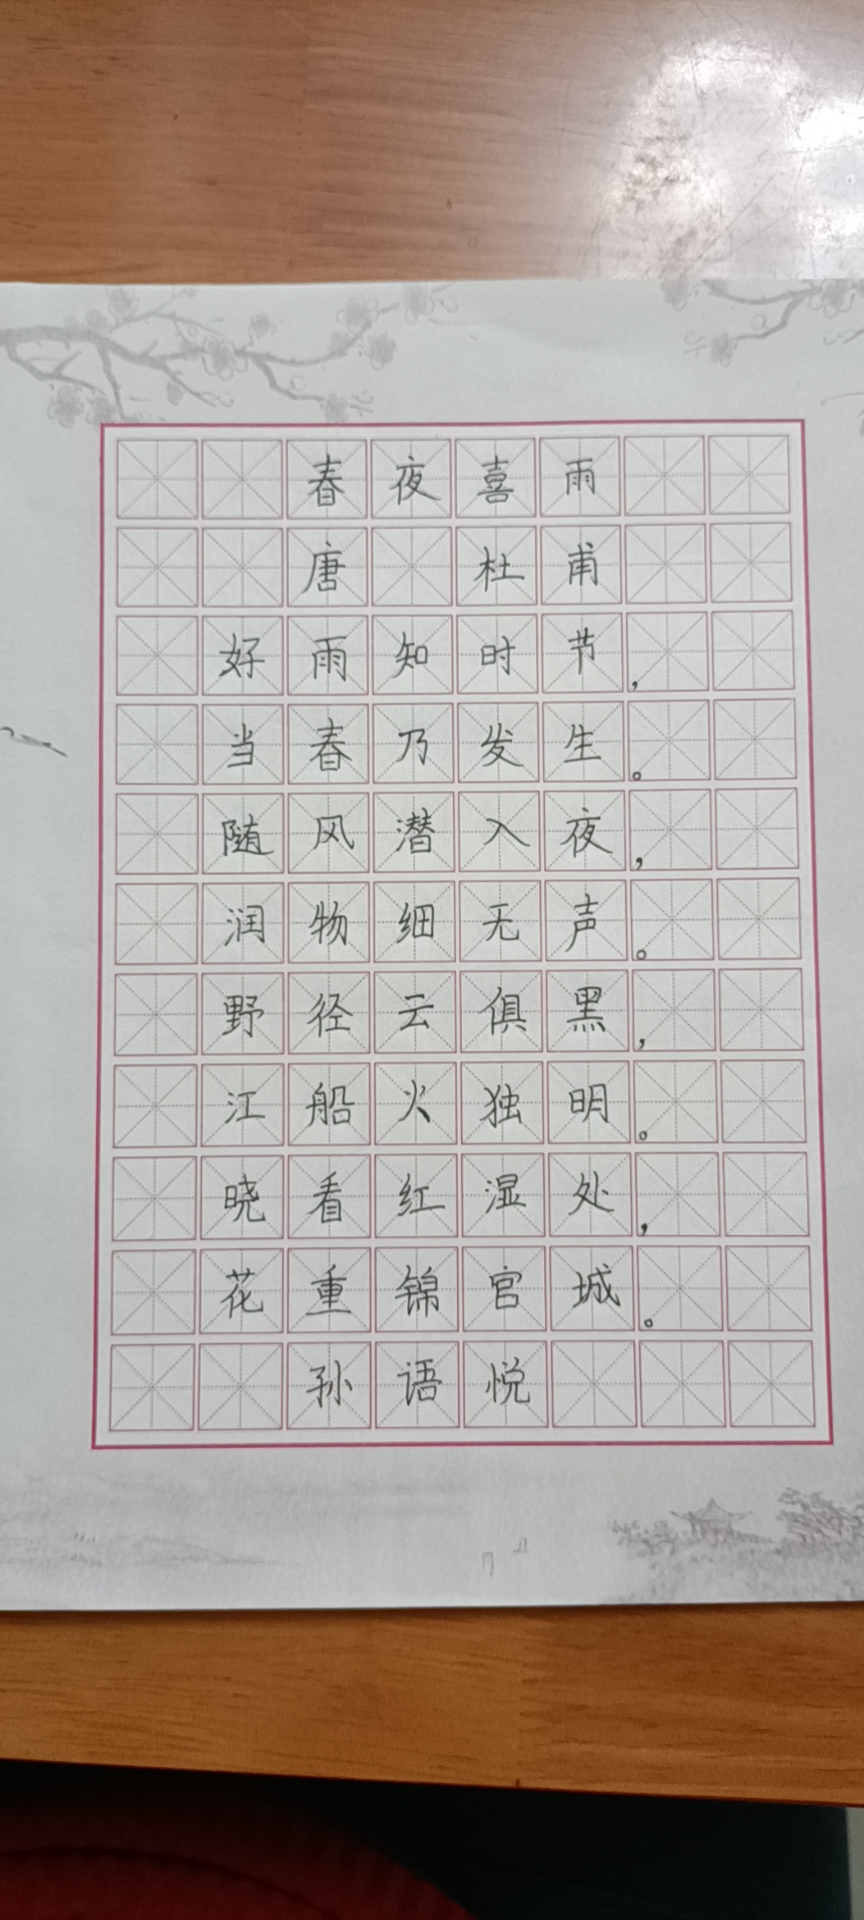 春夜喜雨
唐 杜甫
好雨知时节，
当春乃发生。
随风潜入夜，
润物细无声。
野径云俱黑，
江船火独明。
晓看红湿处，
花重锦官城。
孙语悦